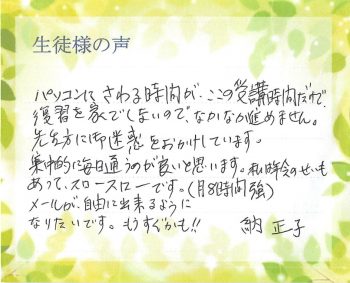 生徒様の声
パソコンに、さわる時間が、ここの受講時間だけで、
復習を家でしないので、なかなか進めません。
先生方に御迷惑をおかけしています。
集中的に毎日通うのが良いと思います。私は年令のせいも
あって、スロースローです。(月8時間強)
メールが、自由に出来るように
なりたいです。もうすぐかも!!
納 正子